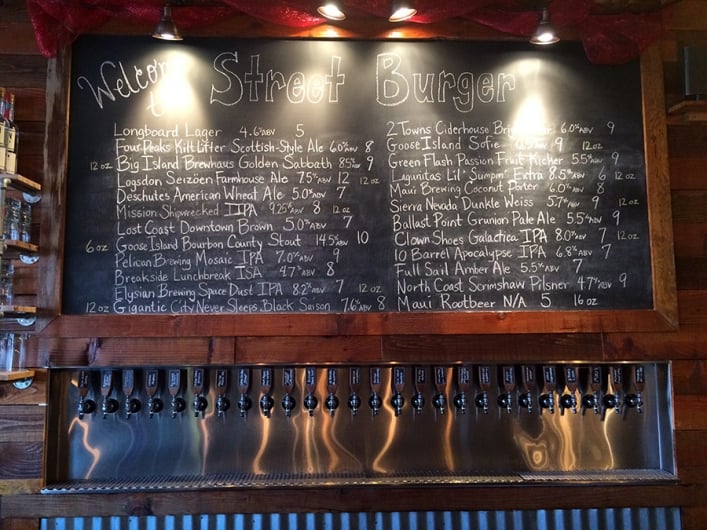 Welcome to Street Burger
Longboard Lager 4.6%ABV 5
Four Peaks Kilt Lifter Scottish-Style Ale 6.0%ABV 8
12 oz Big Island Brewhaus Golden Sabbath 8.5%ABV 9
Logsdon Seizöen Farmhouse Ale 7.5%ABV 12 12 oz
Deschutes American Wheat Ale 5.0%ABV 7
Mission Shipwrecked IIPA 9.25%ABV 8 12 oz
Lost Coast Downtown Brown 5.0%ABV 7
6 oz Goose Island Bourbon County Stout 14.5%ABV 10
Pelican Brewing Mosaic IPA 7.0%ABV 9
Breakside Lunchbreak ISA 4.7%ABV 8
Elysian Brewing Space Dust IPA 8.2%ABV 7
12 oz Gigantic City Never Sleeps, Black Saison 7.6%ABV 8
2 Towns Ciderhouse 6.0%ABV 9
Goose Island Sofie ABV 9 12 oz
Green Flash Passion Fruit Kicker 5.5%ABV 9
Lagunitas Lil' Sumpin' Extra 8.5%ABV 6 12 oz
Maui Brewing Coconut Porter 6.0%ABV 8
Sierra Nevada Dunkle Weiss 5.7%ABV 9
Ballast Point Grunion Pale Ale 5.5%ABV 9
Clown Shoes Galactica IPA 8.0%ABV 7 12 oz
10 Barrel Apocalypse IPA 6.8%ABV 7
Full Sail Amber Ale 5.5%ABV 7
North Coast Scrimshaw Pilsner 4.7%ABV 9
Maui Rootbeer N/A 5 16 oz